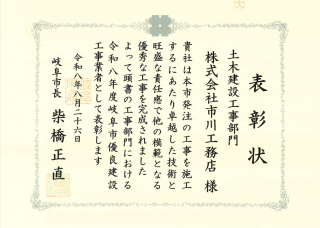 表彰状
土木建設工事部門
株式会社市川工務店 様
貴社は本市発注の工事を施工
するにあたり卓越した技術と
旺盛な責任感で他の模範となる
優秀な工事を完成されました
よって頭書の工事部門における
令和八年度岐阜市優良建設
工事業者として表彰します
令和八年八月二十六日
岐阜市長 柴橋正直